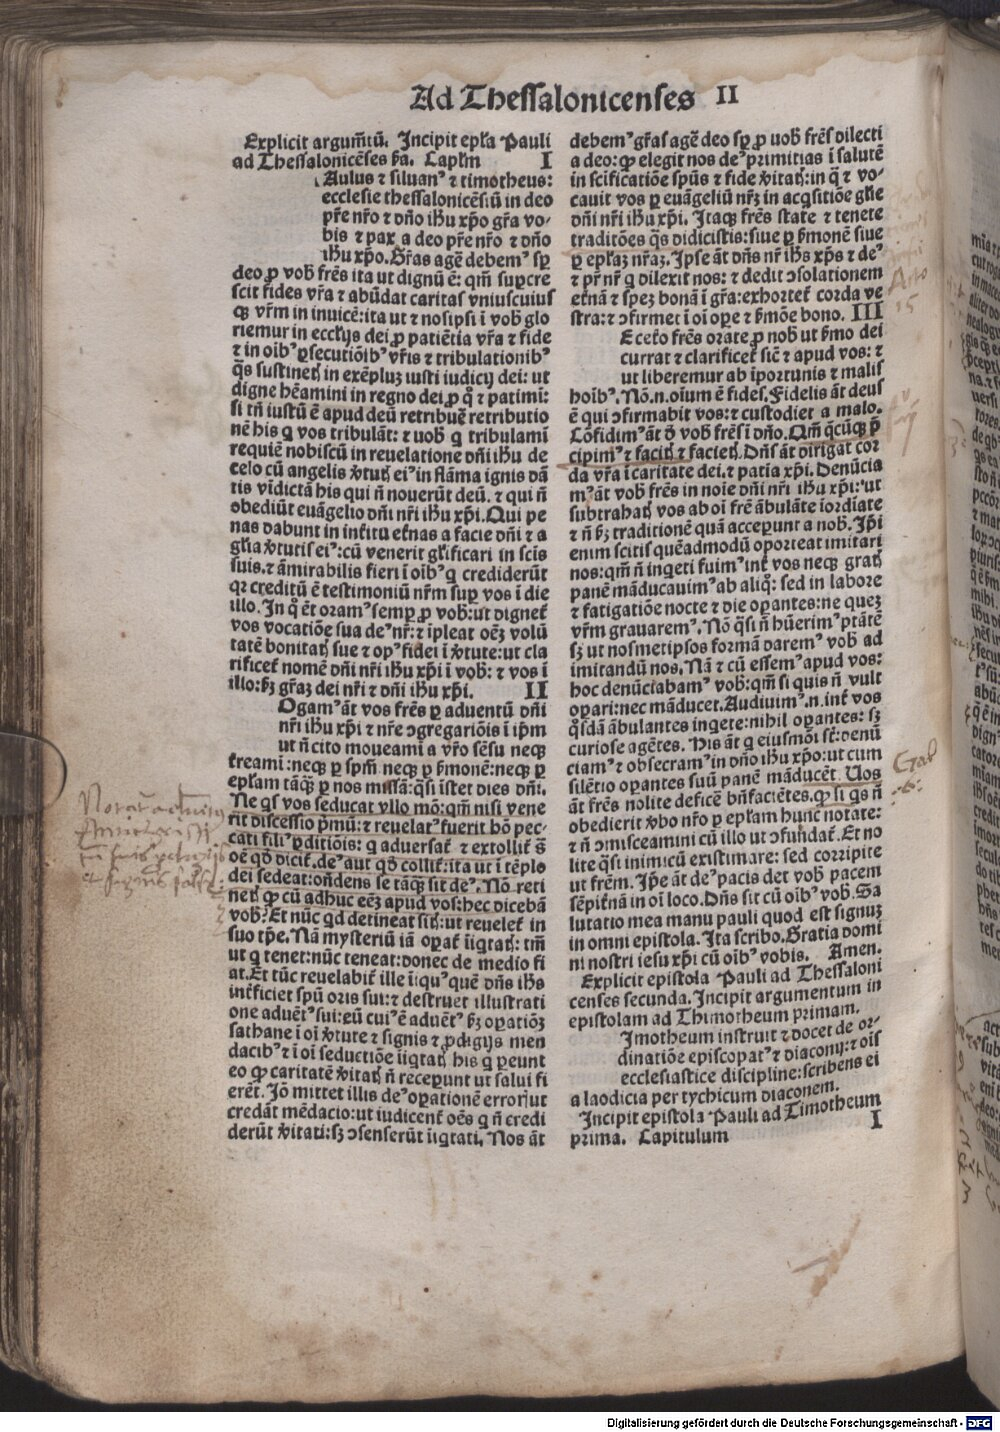 Ad Thessalonicenses II
Explicit argum̄tū. Incipit epl̄a Pauli
ad Thessalonicēses ẜa. Capl̄m I
Aulus ⁊ siluanꝰ ⁊ timotheus:
ecclesie thessalonicēsiū in deo
pr̄e nr̄o ⁊ dn̄o ih̄u xp̄o gr̄a vo-
bis ⁊ pax a deo pr̄e nr̄o ⁊ dn̄o
ih̄u xp̄o. Gr̄as agē debemꝰ sꝑ
deo ꝓ vob̄ fr̄es ita ut dignū ē: qm̄ suꝑcre
scit fides vr̄a ⁊ abūdat caritas vniuscuiusꝰ
qꝫ vr̄m in inuicē: ita ut ⁊ nosipsi ī vob̄ glo
riemur in eccl̄ijs dei ꝓ patiētia vr̄a ⁊ fide
⁊ in oībꝰ ꝑsecutiōibꝰ vr̄is ⁊ tribulationibꝰ
q̄s sustinetꝭ in exēpluꝫ iusti iudicij dei: ut
digne hēamini in regno dei ꝓ qͦ ⁊ patimī:
si tn̄ iustū ē apud deū retribuē retributio
nē his q vos tribulāt: ⁊ uob̄ q tribulamī
requiē nobiscū in reuelatione dn̄i ih̄u de
celo cū angelis v̄tutꝭ eiꝰ in flāma ignis dā
tis vīdictā his qui n̄ nouerūt deū. ⁊ qui n̄
obediūt euāgelio dn̄i nr̄i ih̄u xp̄i. Qui pe
nas dabunt in int̄itu et̄nas a facie dn̄i ⁊ a
gl̄ia v̄tutis eiꝰ: cū venerit gl̄ificari in scīs
suis. ⁊ āmirabilis fieri ī oībꝰ q crediderūt
qꝛ creditū ē testimoniū nr̄m suꝑ vos ī die
illo. In qͦ ēt oramꝰ semꝑ ꝓ vob̄: ut dignet̄
vos vocatiōe sua deꝰ nr̄: ⁊ īpleat oēꝫ volū
tatē bonitatꝭ sue ⁊ opꝰ fidei ī v̄tute: ut cla
rificet̄ nomē dn̄i nr̄i ih̄u xp̄i ī vob̄: ⁊ vos ī
illo: ẜꝫ gr̄aꝫ dei nr̄i ⁊ dn̄i ih̄u xp̄i. II
Ogamꝰ āt vos fr̄es ꝑ aduentū dn̄i
nr̄i ih̄u xp̄i ⁊ nr̄e ↄgregariōis ī ip̄m
ut n̄ cito moueamī a vr̄o sēsu neqꝫ
t̄reamī: neqꝫ ꝑ sp̄m neqꝫ ꝑ ẜmonē: neqꝫ ꝑ
epl̄am tāqꝫ ꝑ nos missā: q̄si īstet dies dn̄i.
Ne qͥs vos seducat vllo mō: qm̄ nisi vene
rit discessio p̄mū: ⁊ reuelatꝰ fuerit hō pec-
cati filiꝰ ꝑditiōis: q aduersat̄ ⁊ extollit̄ s̄
oē qd̄ dicit̄. deꝰ aut qd̄ collit̄: ita ut ī tēplo
dei sedeat: on̄dens se tāqꝫ sit deꝰ. Nō reti
netꝭ ꝙ cū adhuc eēꝫ apud vos: hec dicebā
vob̄: Et nūc qd detineat sitꝭ: ut reuelet̄ in
suo tp̄e. Nā mysteriū iā oꝑat̄ īiqtatꝭ: tm̄
ut q tenet: nūc teneat: donec de medio fi
at. Et tūc reuelabit̄ ille īiquꝰ quē dn̄s ih̄s
int̄ficiet spū oris sui: ⁊ destruet illustrati
one aduētꝰ sui: eū cuiꝰ ē aduētꝰ ẜꝫ oꝑatiōꝫ
sathane ī oī v̄tute ⁊ signis ⁊ ꝓdigijs men
dacibꝰ ⁊ ī oī seductiōe īiqtatꝭ his q ꝑeunt
eo ꝙ caritatē v̄itatꝭ n̄ receꝑunt ut salui fi
erēt. Iō mittet illis deꝰ oꝑationē erroris ut
credāt mēdacio: ut iudicent̄ oēs q n̄ credi
derūt v̄itati: sꝫ ↄsenserūt īiqtati. Nos āt
debemꝰ gr̄as agē deo sꝑ ꝓ uob̄ fr̄es dilecti
a deo: ꝙ elegit nos deꝰ primitias ī salutē
in scīficatiōe spūs ⁊ fide v̄itatꝭ: in q̄ ⁊ vo-
cauit vos ꝑ euāgeliū nr̄ꝫ in acqsitiōe gl̄ie
dn̄i nr̄i ih̄u xp̄i. Itaqꝫ fr̄es state ⁊ tenete
traditōes q̄s didicistis: siue ꝑ ẜmonē siue
ꝑ epl̄aꝫ nr̄aꝫ. Ipse āt dn̄s nr̄ ih̄s xp̄s ⁊ deꝰ
⁊ pr̄ nr̄ q dilexit nos: ⁊ dedit ↄsolationem
et̄nā ⁊ speꝫ bonā ī gr̄a: exhortet̄ corda ve
stra: ⁊ ↄfirmet ī oī oꝑe ⁊ ẜmōe bono. III
E ceto fr̄es orate ꝓ nob̄ ut ẜmo dei
currat ⁊ clarificet̄ sic̄ ⁊ apud vos: ⁊
ut liberemur ab īportunis ⁊ malis
hoībꝰ. Nō .n. oīum ē fides. Fidelis āt deus
ē qui ↄfirmabit vos: ⁊ custodiet a malo.
Cōfidimꝰ āt d̄ vob̄ fr̄es ī dn̄o. Qm̄ q̄cūqꝫ p̄
cipimꝰ ⁊ facitꝭ ⁊ facietꝭ. Dn̄s āt dirigat cor
da vr̄a ī caritate dei. ⁊ patīa xp̄i. Denūcia
mꝰ āt vob̄ fr̄es in noīe dn̄i nr̄i ih̄u xp̄i: ut
subtrahatꝭ vos ab oī fr̄e ābulāte īordīate
⁊ n̄ ẜꝫ traditionē quā acceꝑunt a nob̄. Ip̄i
enim scitis quēadmodū oporteat imitari
nos: qm̄ n̄ īqeti fuimꝰ int̄ vos neqꝫ gratꝭ
panē māducauimꝰ ab aliqͦ: sed in labore
⁊ fatigatiōe nocte ⁊ die oꝑantes: ne queꝫ
vr̄m grauaremꝰ. Nō q̄si n̄ hūerimꝰ ptātē
sꝫ ut nosmetipsos formā daremꝰ vob̄ ad
imitandū nos. Nā ⁊ cū essemꝰ apud vos:
hoc denūciabamꝰ vob̄: qm̄ si quis n̄ vult
oꝑari: nec māducet. Audiuimꝰ .n. int̄ vos
qͦsdā ābulantes īqete: nihil oꝑantes: sꝫ
curiose agētes. His āt q eiusmōi st̄: denū
ciamꝰ ⁊ obsecramꝰ in dn̄o ih̄u xp̄o: ut cum
silētio oꝑantes suū panē māducēt. Uos
āt fr̄es nolite deficē bn̄faciētes. ꝙ si qͥs n̄
obedierit v̄bo nr̄o ꝑ epl̄am hunc notate:
⁊ n̄ ↄmisceamini cū illo ut ↄfundat̄. Et no
lite q̄si inimicū existimare: sed corripite
ut fr̄em. Ip̄e āt deꝰ pacis det vob̄ pacem
sēpit̄nā in oī loco. Dn̄s sit cū oībꝰ vob̄. Sa
lutatio mea manu pauli quod est signuꝫ
in omni epistola. Ita scribo. Gratia domi
ni nostri iesu xp̄i cū oībꝰ vobis. Amen.
Explicit epistola Pauli ad Thessaloni
censes secunda. Incipit argumentum in
epistolam ad Thimotheum primam.
Imotheum instruit ⁊ docet de or-
dinatiōe episcopatꝰ ⁊ diaconij: ⁊ oīs
ecclesiastice discipline: scribens ei
a laodicia per tychicum diaconem.
Incipit epistola Pauli ad Timotheum
prima. Capitulum I
Gal
6:
Digitalisierung gefördert durch die Deutsche Forschungsgemeinschaft - DFG